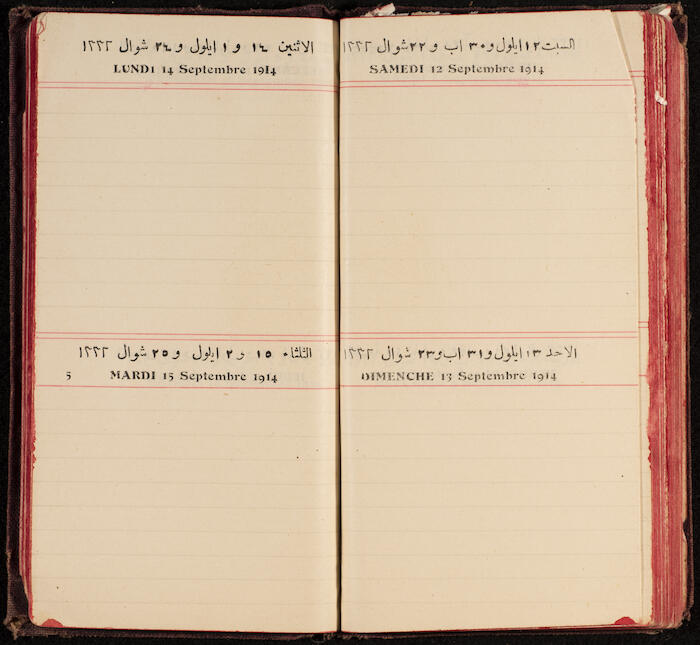 السبت ١٢ ايلول و ٣٠ اب و ٢٢ شوال ١٣٣٢
SAMEDI 12 Septembre 1914
الاحد ١٣ ايلول و ٣١ اب و ٢٣ شوال ١٣٣٢
DIMENCHE 13 Septembre 1914
الاثنين ١٤ و ١ ايلول و ٢٤ شوال ١٣٣٢
LUNDI 14 Septembre 1914
الثلثاء ١٥ و ٢ ايلول و ٢٥ شوال ١٣٣٢
5 MARDI 15 Septembre 1914